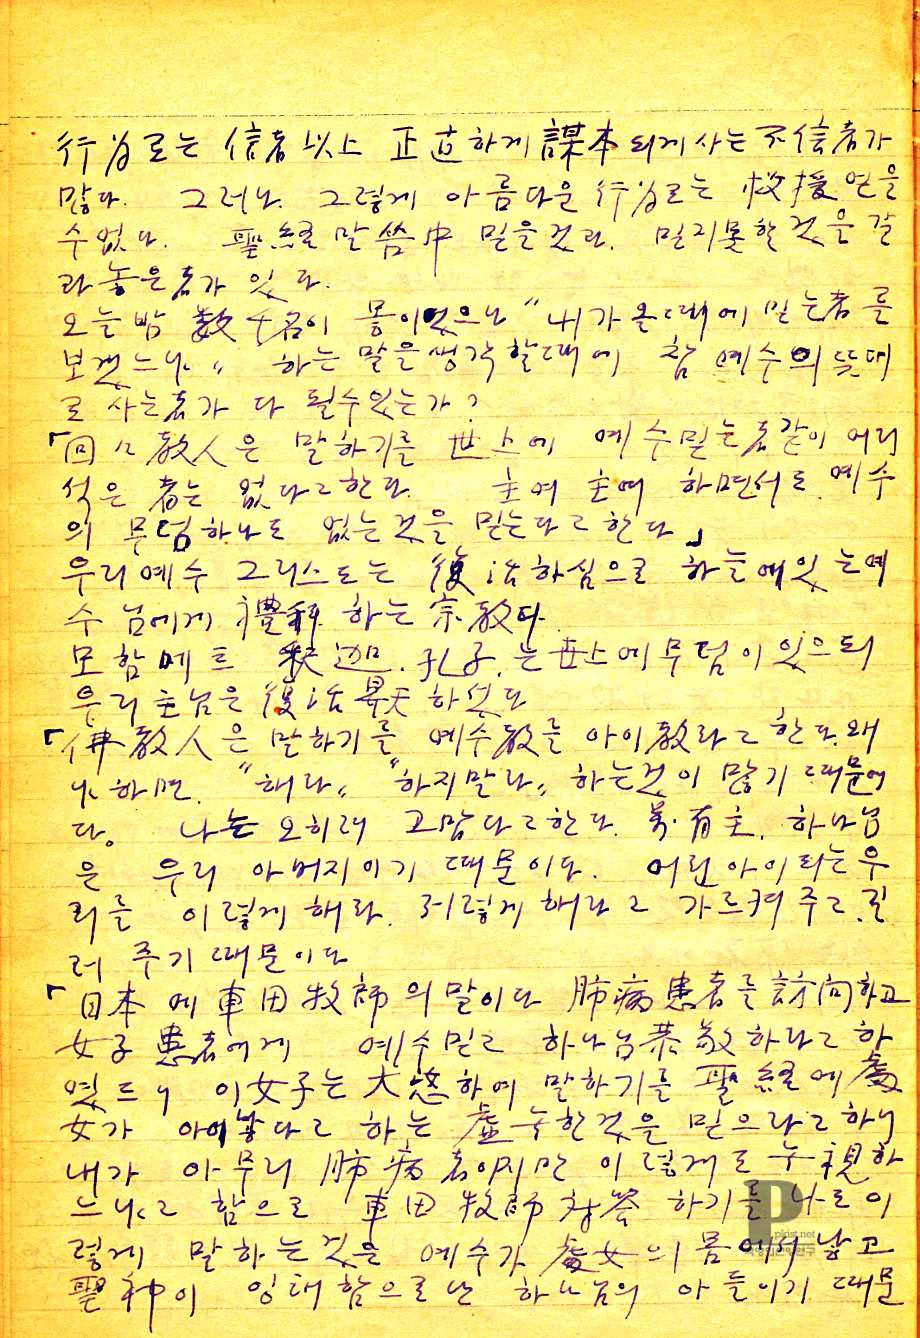 行為로는 信者以上 正直하게 謀本되게 사는 不信者가
많다. 그러나. 그렇게 아름다운 行为로는 救援 얻을
수 없다. 聖經 말씀中 믿을것과. 믿지못할것을 갈
라놓은 者가 있다.
오늘밤 数千名이 뫃이엿으나 "내가 올때에 믿는者를
보겠느냐" 하는 말을 생각할때에 참 예수의 뜻대
로 사는者가 다 될수있는가?
「回々教人은 말하기를 世上에 예수믿는者같이 어리
석은 者는 없다고한다. 主여 主여 하면서도 예수
의 무덤하나도 없는것을 믿는다고한다」
우리예수 그리스도는 復活하심으로 하늘에있는예
수님에게 禮拜 하는 宗教다.
모함메트 釈迦. 孔子.는 世上에무덤이 있으되
우리主님은 復活昇天 하셧다
「佛教人은 말하기를 예수教를 아이教라고한다. 왜
냐하면. "해라" "하지말라" 하는것이 많기 때문에
다. 나는 오히려 고맙다고한다. 萬有主. 하나님
은 우리 아버지이기 때문이다. 어린아이되는우
리를 이렇게 해라. 저렇게 해라고 가르켜주고.길
러 주기때문이다
「日本에 車田牧師의 말이다 肺病患者를 訪问하고
女子 患者에게 예수믿고 하나님恭敬하라고하
였드니 이女子는 大怒하여 말하기를 聖經에處
女가 아이낳다고 하는 虛무한것을 믿으라고하니
내가 아무리 肺病者이지만 이렇게도 무視하
느냐고 함으로 車田 牧師 対答 하기를 나도이
렇게 말하는것은 예수가 處女의 몸에서 낳고
聖神이 잉태함으로난 하나님의 아들이기 때문